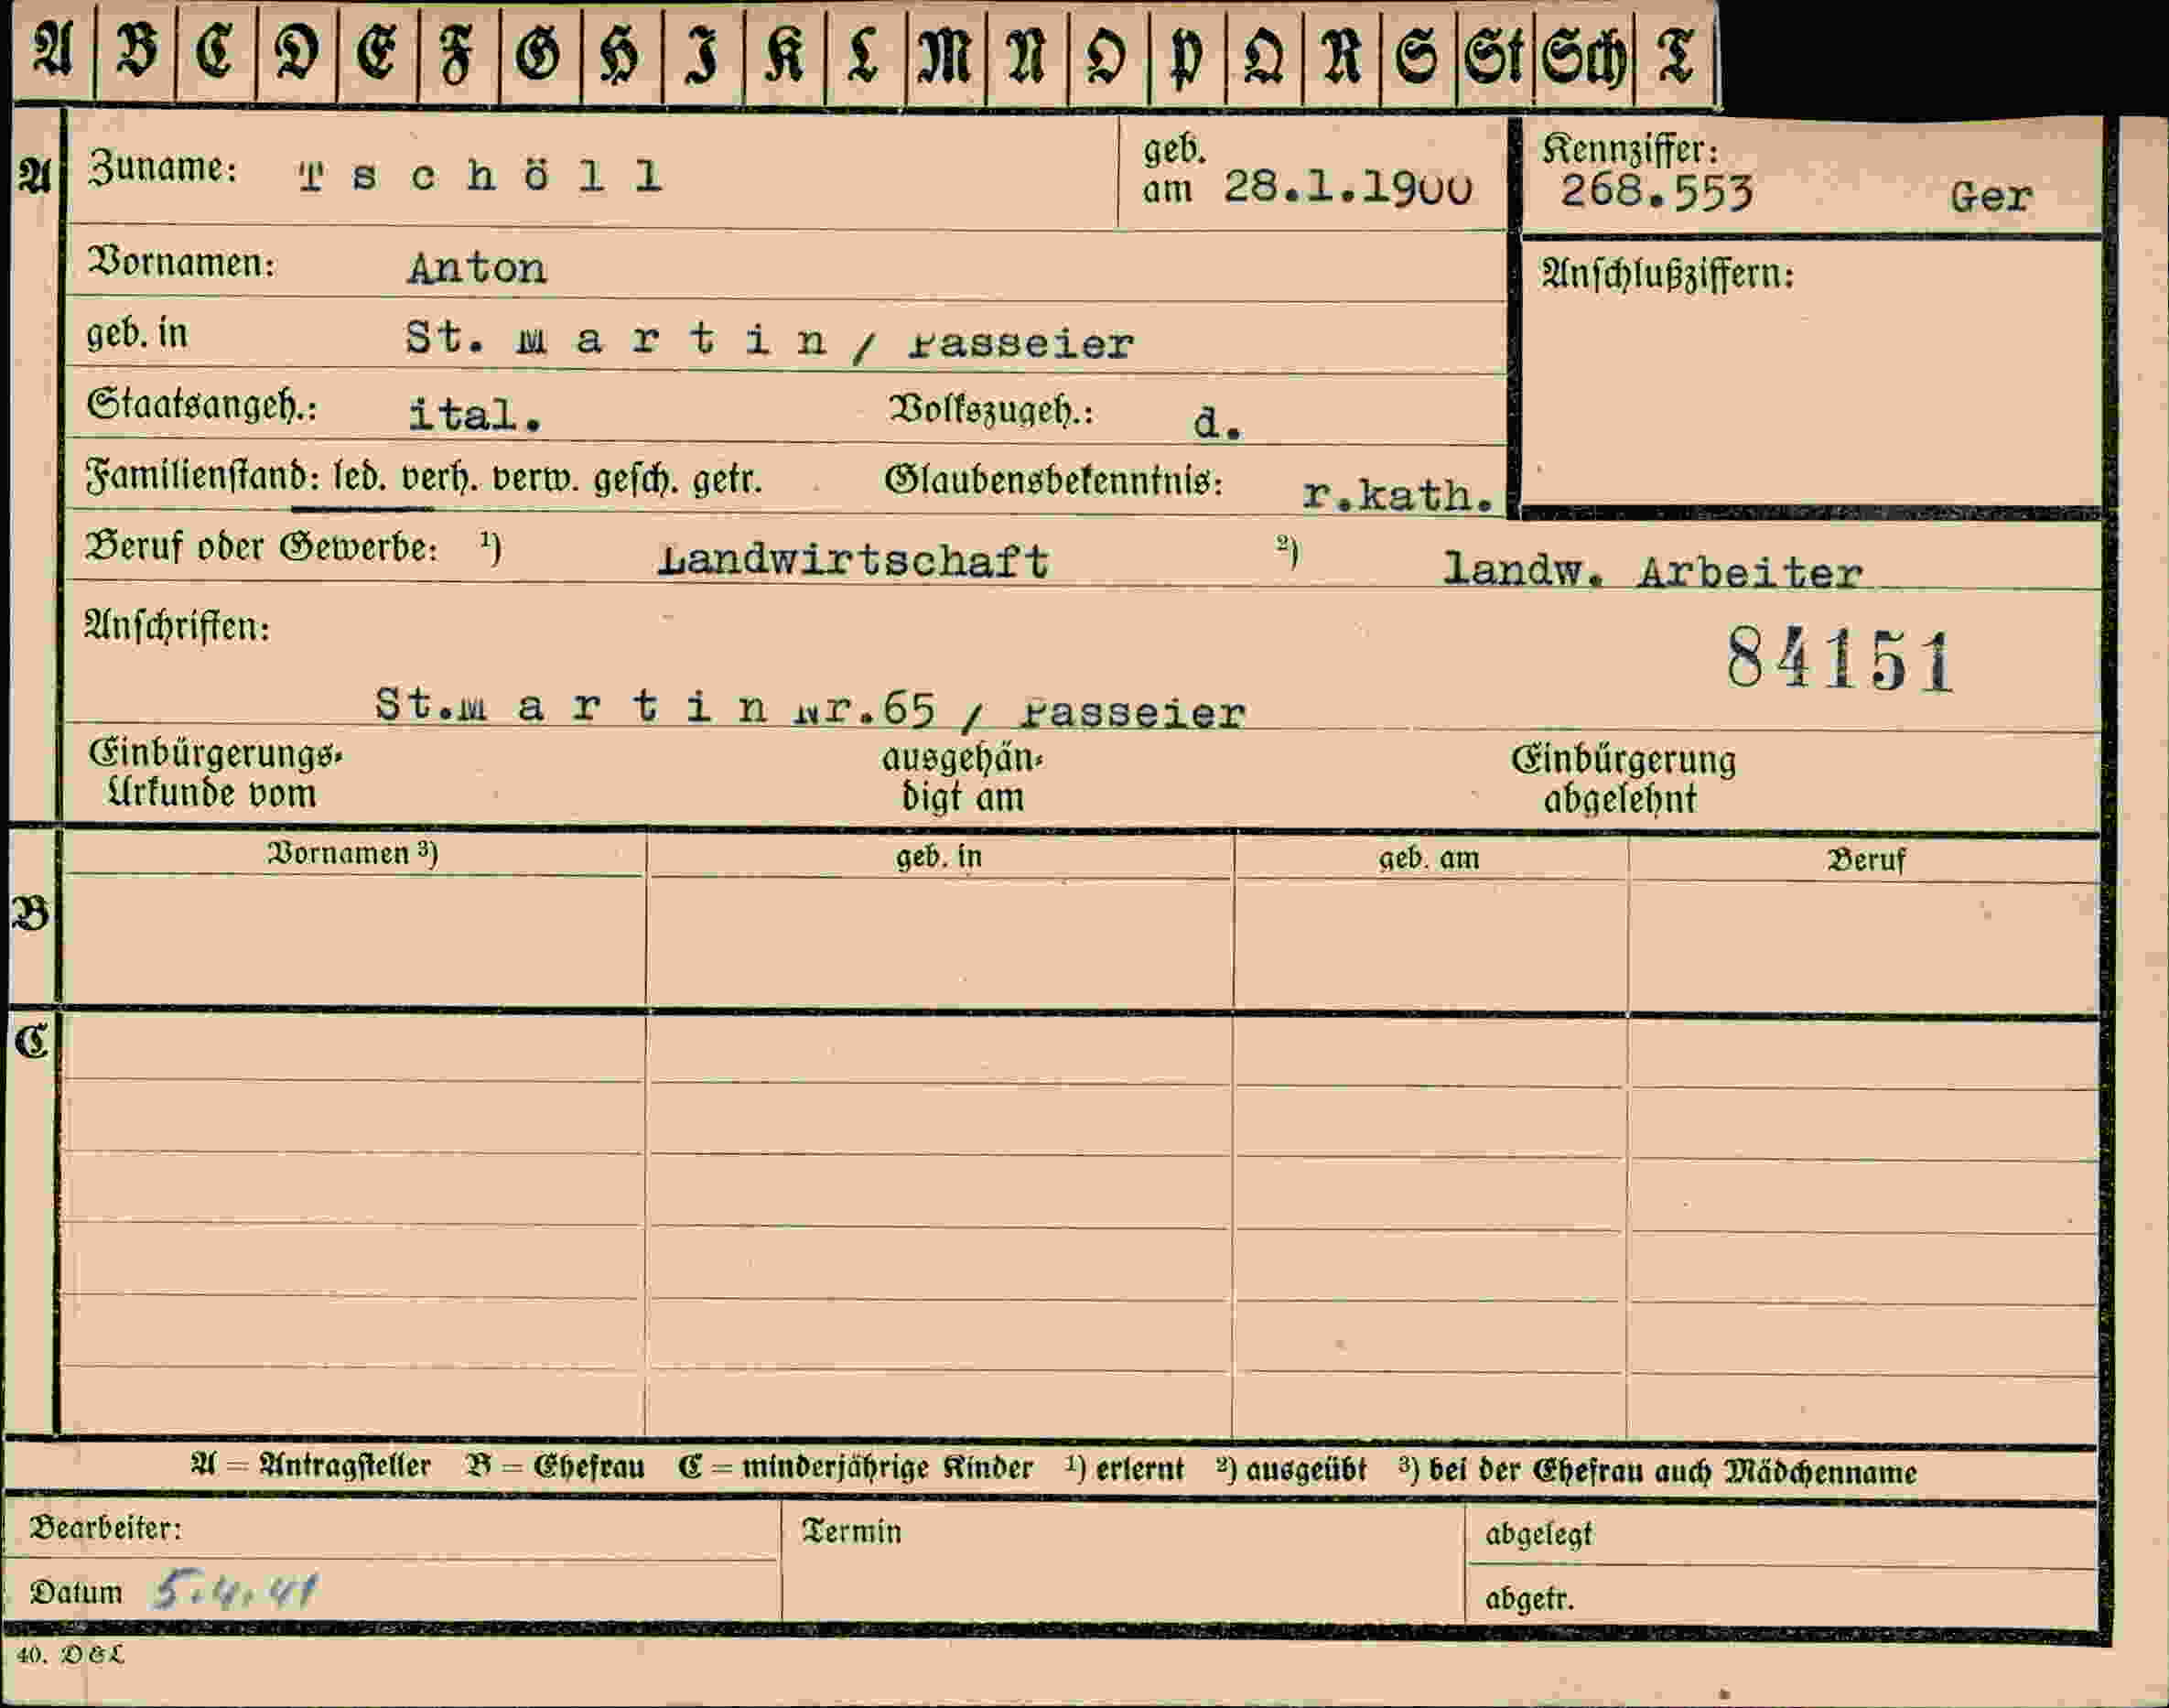 A B C D E F G H I K L M N O P Q R S St Sch T
A Zuname: T s c h ö l l geb. am 28.1.1900 Kennziffer: 268.553 Ger
Vornamen: Anton Anschlußziffern:
geb. in St. M a r t i n / Passeier
Staatsangeh.: ital. Volkszugeh.: d.
Familienstand: led. verh. verw. gesch. getr. Glaubensbekenntnis: r.kath.
Beruf oder Gewerbe: 1) Landwirtschaft 2) landw. Arbeiter
Anschriften:
84151
St.M a r t i n Nr.65 / Passeier
Einbürgerungs- ausgehän- Einbürgerung
Urkunde vom digt am abgelehnt
Vornamen 3) geb. in geb. am Beruf
B
C
A = Antragsteller B = Ehefrau C = minderjährige Kinder 1) erlernt 2) ausgeübt 3) bei der Ehefrau auch Mädchenname
Bearbeiter: Termin abgelegt
Datum 5.4.41 abgetr.
40. D & L